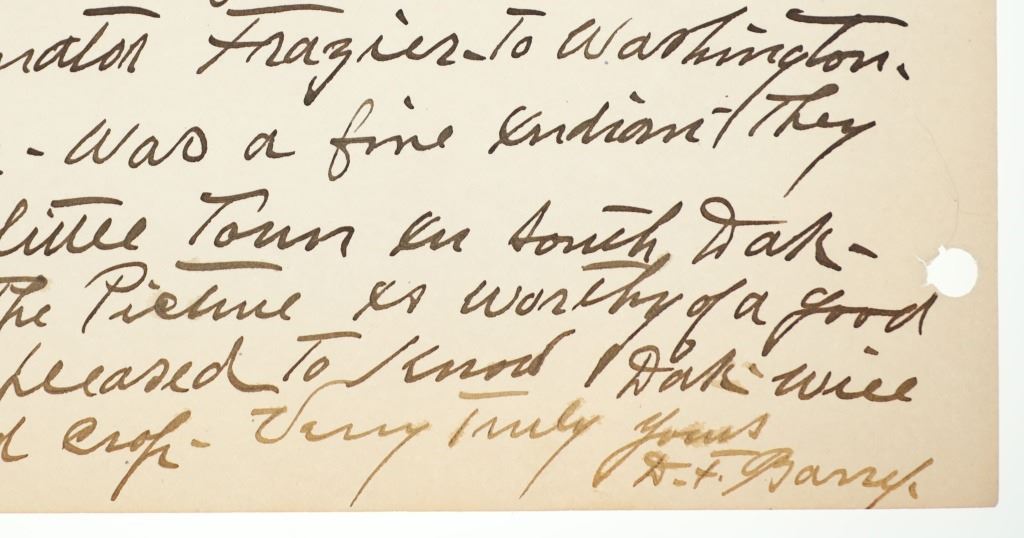 nator Frazier - To Washington.
- Was a fine Indian - They
little Town in South Dak -
The Picture is worthy of a good
pleased To Know Dak - will
d crop - Very Truly Yours
D. F. Barry.